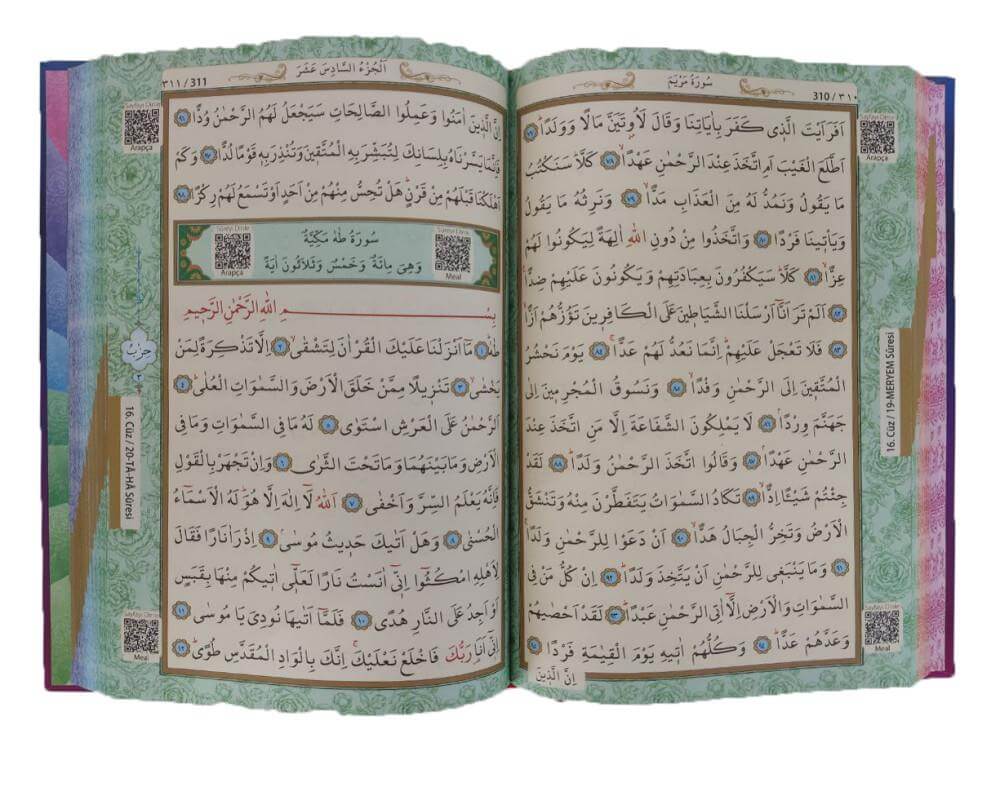 سُورَةُ مَرْيَمَ
310 / ٣١٠
اَفَرَاَيْتَ الَّذ۪ى كَفَرَ بِاٰيَاتِنَا وَقَالَ لَاُو۫تَيَنَّ مَالًا وَوَلَدًاۜ ﴿٧٧﴾
اَطَّلَعَ الْغَيْبَ اَمِ اتَّخَذَ عِنْدَ الرَّحْمٰنِ عَهْدًاۙ ﴿٧٨﴾ كَلَّاۜ سَنَكْتُبُ
مَا يَقُولُ وَنَمُدُّ لَهُ مِنَ الْعَذَابِ مَدًّاۙ ﴿٧٩﴾ وَنَرِثُهُ مَا يَقُولُ
وَيَأْت۪ينَا فَرْدًا ﴿٨٠﴾ وَاتَّخَذُوا مِنْ دُونِ اللّٰهِ اٰلِهَةً لِيَكُونُوا لَهُمْ
عِزًّاۙ ﴿٨١﴾ كَلَّاۜ سَيَكْفُرُونَ بِعِبَادَتِهِمْ وَيَكُونُونَ عَلَيْهِمْ ضِدًّا۟
﴿٨٢﴾ اَلَمْ تَرَ اَنَّٓا اَرْسَلْنَا الشَّيَاط۪ينَ عَلَى الْكَافِر۪ينَ تَؤُزُّهُمْ اَزًّاۙ
﴿٨٣﴾ فَلَا تَعْجَلْ عَلَيْهِمْۜ اِنَّمَا نَعُدُّ لَهُمْ عَدًّاۚ ﴿٨٤﴾ يَوْمَ نَحْشُرُ
الْمُتَّق۪ينَ اِلَى الرَّحْمٰنِ وَفْدًاۙ ﴿٨٥﴾ وَنَسُوقُ الْمُجْرِم۪ينَ اِلٰى
جَهَنَّمَ وِرْدًاۢ ﴿٨٦﴾ لَا يَمْلِكُونَ الشَّفَاعَةَ اِلَّا مَنِ اتَّخَذَ عِنْدَ
الرَّحْمٰنِ عَهْدًاۢ ﴿٨٧﴾ وَقَالُوا اتَّخَذَ الرَّحْمٰنُ وَلَدًاۜ ﴿٨٨﴾ لَقَدْ
جِئْتُمْ شَيْـًٔا اِدًّاۙ ﴿٨٩﴾ تَكَادُ السَّمٰوَاتُ يَتَفَطَّرْنَ مِنْهُ وَتَنْشَقُّ
الْاَرْضُ وَتَخِرُّ الْجِبَالُ هَدًّاۙ ﴿٩٠﴾ اَنْ دَعَوْا لِلرَّحْمٰنِ وَلَدًاۚ
﴿٩١﴾ وَمَا يَنْبَغ۪ى لِلرَّحْمٰنِ اَنْ يَتَّخِذَ وَلَدًاۜ ﴿٩٢﴾ اِنْ كُلُّ مَنْ فِى
السَّمٰوَاتِ وَالْاَرْضِ اِلَّٓا اٰتِى الرَّحْمٰنِ عَبْدًاۜ ﴿٩٣﴾ لَقَدْ اَحْصٰيهُمْ
وَعَدَّهُمْ عَدًّاۜ ﴿٩٤﴾ وَكُلُّهُمْ اٰت۪يهِ يَوْمَ الْقِيٰمَةِ فَرْدًا ﴿٩٥﴾
اِنَّ الَّذ۪ينَ
Sayfayı Dinle
Arapça
16. Cüz / 19-MERYEM Sûresi
Sayfayı Dinle
Meal
اَلْجُزْءُ السَّادِسَ عَشَرَ
٣١١ / 311
اِنَّ الَّذ۪ينَ اٰمَنُوا وَعَمِلُوا الصَّالِحَاتِ سَيَجْعَلُ لَهُمُ الرَّحْمٰنُ وُدًّا ﴿٩٦﴾
فَاِنَّمَا يَسَّرْنَاهُ بِلِسَانِكَ لِتُبَشِّرَ بِهِ الْمُتَّق۪ينَ وَتُنْذِرَ بِه۪ قَوْمًا لُدًّا ﴿٩٧﴾ وَكَمْ
اَهْلَكْنَا قَبْلَهُمْ مِنْ قَرْنٍۜ هَلْ تُحِسُّ مِنْهُمْ مِنْ اَحَدٍ اَوْ تَسْمَعُ لَهُمْ رِكْزًا ﴿٩٨﴾
سُورَةُ طٰهٰ مَكِّيَّةٌ
وَهِىَ مِائَةٌ وَخَمْسٌ وَثَلَاثُونَ اٰيَةً
Sûreyi Dinle
Meal
Sûreyi Dinle
Arapça
بِسْمِ اللّٰهِ الرَّحْمٰنِ الرَّح۪يمِ
طٰهٰۜ ﴿١﴾ مَٓا اَنْزَلْنَا عَلَيْكَ الْقُرْاٰنَ لِتَشْقٰىۙ ﴿٢﴾ اِلَّا تَذْكِرَةً لِمَنْ
يَخْشٰىۙ ﴿٣﴾ تَنْز۪يلًا مِمَّنْ خَلَقَ الْاَرْضَ وَالسَّمٰوَاتِ الْعُلٰىۜ ﴿٤﴾
اَلرَّحْمٰنُ عَلَى الْعَرْشِ اسْتَوٰى ﴿٥﴾ لَهُ مَا فِى السَّمٰوَاتِ وَمَا فِى
الْاَرْضِ وَمَا بَيْنَهُمَا وَمَا تَحْتَ الثَّرٰى ﴿٦﴾ وَاِنْ تَجْهَرْ بِالْقَوْلِ
فَاِنَّهُ يَعْلَمُ السِّرَّ وَاَخْفٰى ﴿٧﴾ اَللّٰهُ لَٓا اِلٰهَ اِلَّا هُوَۜ لَهُ الْاَسْمَٓاءُ
الْحُسْنٰى ﴿٨﴾ وَهَلْ اَتٰيكَ حَد۪يثُ مُوسٰىۢ ﴿٩﴾ اِذْ رَاٰ نَارًا فَقَالَ
لِاَهْلِهِ امْكُـثُٓوا اِنّ۪ٓى اٰنَسْتُ نَارًا لَعَلّ۪ٓى اٰت۪يكُمْ مِنْهَا بِقَبَسٍ
اَوْ اَجِدُ عَلَى النَّارِ هُدًى ﴿١٠﴾ فَلَمَّٓا اَتٰيهَا نُودِىَ يَا مُوسٰى ﴿١١﴾
اِنّ۪ٓى اَنَا۬ رَبُّكَ فَاخْلَعْ نَعْلَيْكَۚ اِنَّكَ بِالْوَادِ الْمُقَدَّسِ طُوًىۜ ﴿١٢﴾
Sayfayı Dinle
Arapça
حِزْبٌ
٣
16. Cüz / 20-TÂ-HÂ Sûresi
Sayfayı Dinle
Meal